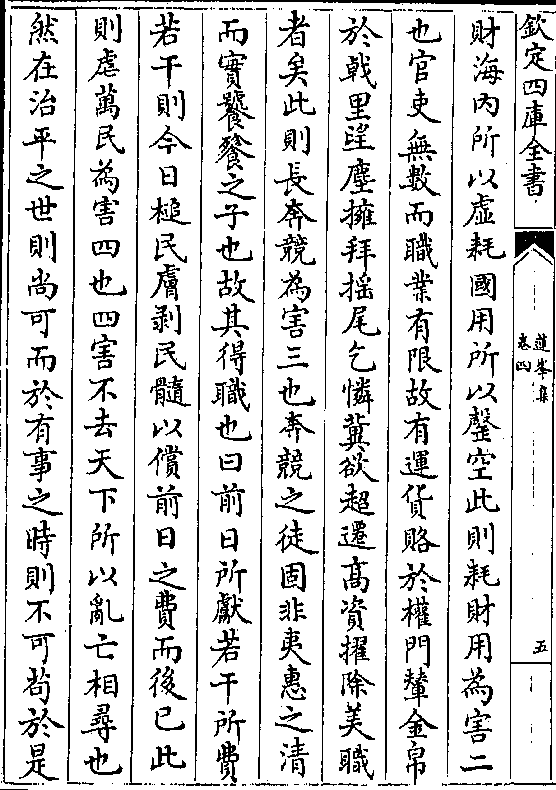 欽定四庫全書
蓮峯集
卷四
五
財海内所以虚耗國用所以罄空此則耗財用為害二
也官吏無數而職業有限故有運貨賂於權門輦金帛
於戟里望塵擁拜揺尾乞憐冀欲超遷髙資擢除美職
者矣此則長奔競為害三也奔競之徒固非夷惠之清
而實饕餮之子也故其得職也曰前日所獻若干所費
若干則今日槌民膚剥民髓以償前日之費而後已此
則虐萬民為害四也四害不去天下所以亂亡相尋也
然在治平之世則尚可而於有事之時則不可茍於是